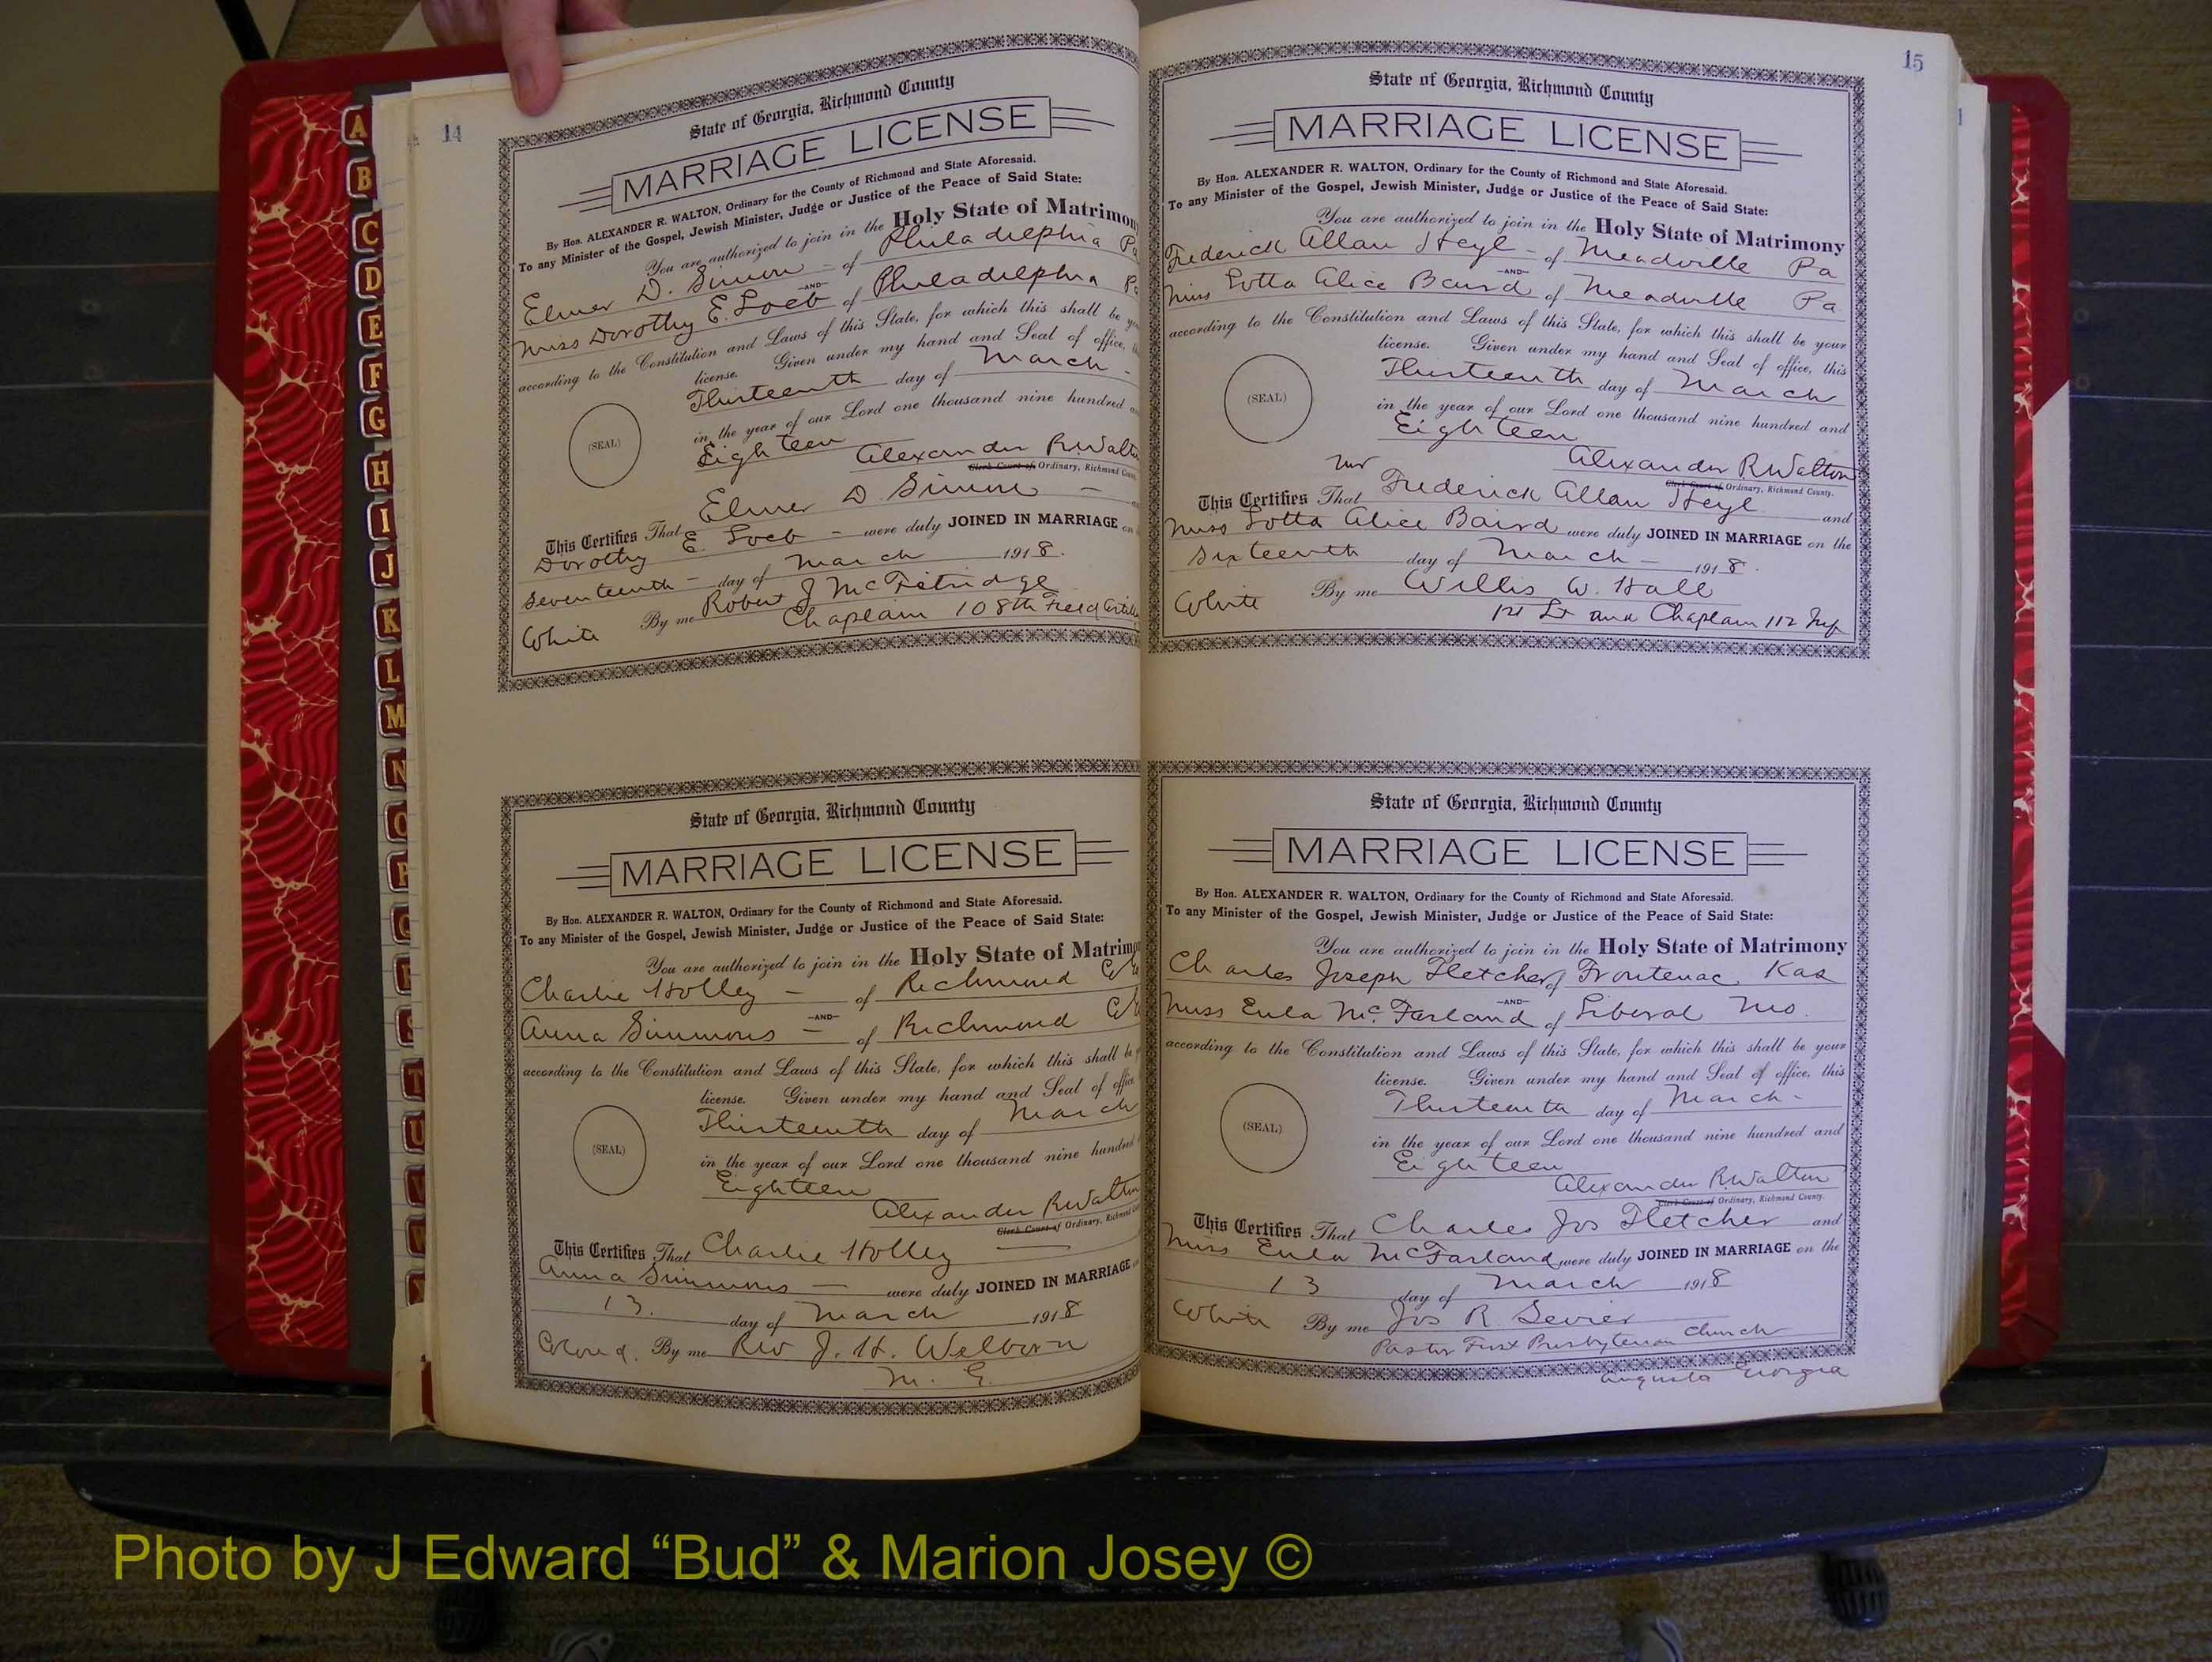 14
State of Georgia, Richmond County
MARRIAGE LICENSE
By Hon. ALEXANDER R. WALTON, Ordinary for the County of Richmond and State Aforesaid.
To any Minister of the Gospel, Jewish Minister, Judge or Justice of the Peace of Said State:
You are authorized to join in the Holy State of Matrimony
Elmer D. Simon - of Philadelphia Pa
-AND-
Miss Dorothy E. Loeb of Philadelphia Pa
according to the Constitution and Laws of this State, for which this shall be
license. Given under my hand and Seal of office,
Thirteenth day of March -
(SEAL)
in the year of our Lord one thousand nine hundred
Eighteen
Alexander R. Walton
Clerk Court of Ordinary, Richmond
This Certifies That Elmer D Simon -
Dorothy E. Loeb - were duly JOINED IN MARRIAGE on
Seventeenth - day of March 1918.
White By me Robert J McFetridge
Chaplain 108th Field
State of Georgia, Richmond County
MARRIAGE LICENSE
By Hon. ALEXANDER R. WALTON, Ordinary for the County of Richmond and State Aforesaid.
To any Minister of the Gospel, Jewish Minister, Judge or Justice of the Peace of Said State:
You are authorized to join in the Holy State of Matrimo
Charlie Holley - of Richmond
-AND-
Anna Simmons - of Richmond
according to the Constitution and Laws of this State, for which this shall be
license. Given under my hand and Seal of office
Thirteenth day of March
(SEAL)
in the year of our Lord one thousand nine hundred
Eighteen
Alexander R. Walton
Clerk Court of Ordinary, Richmond
This Certifies That Charlie Holley
Anna Simmons - were duly JOINED IN MARRIAGE
13. day of March 1918
Colored. By me Rev J. H. Welborn
M. E.
15
State of Georgia, Richmond County
MARRIAGE LICENSE
By Hon. ALEXANDER R. WALTON, Ordinary for the County of Richmond and State Aforesaid.
To any Minister of the Gospel, Jewish Minister, Judge or Justice of the Peace of Said State:
You are authorized to join in the Holy State of Matrimony
Frederick Allan Heyl - of Meadville Pa
-AND-
Miss Lotta Alice Baird of Meadville Pa.
according to the Constitution and Laws of this State, for which this shall be your
license. Given under my hand and Seal of office, this
Thirteenth day of March
(SEAL)
in the year of our Lord one thousand nine hundred and
Eighteen
Alexander R. Walton
Clerk Court of Ordinary, Richmond County.
Mr
This Certifies That Frederick Allan Heyl and
Miss Lotta Alice Baird were duly JOINED IN MARRIAGE on the
Sixteenth day of March - 1918.
White By me Willis W. Hall
1st Lt and Chaplain 112 Inf
State of Georgia, Richmond County
MARRIAGE LICENSE
By Hon. ALEXANDER R. WALTON, Ordinary for the County of Richmond and State Aforesaid.
To any Minister of the Gospel, Jewish Minister, Judge or Justice of the Peace of Said State:
You are authorized to join in the Holy State of Matrimony
Charles Joseph Fletcher of Frontenac Kas
-AND-
Miss Eula McFarland of Liberal Mo.
according to the Constitution and Laws of this State, for which this shall be your
license. Given under my hand and Seal of office, this
Thirteenth day of March -
(SEAL)
in the year of our Lord one thousand nine hundred and
Eighteen
Alexander R. Walton
Clerk Court of Ordinary, Richmond County.
This Certifies That Charles Jos Fletcher and
Miss Eula McFarland were duly JOINED IN MARRIAGE on the
13 day of March 1918
White By me Jos R. Sevier
Pastor First Presbyterian Church
Augusta Georgia
A
B
C
D
E
F
G
H
I
J
K
L
M
N
O
P
Q
R
S
T
U
V
W
Photo by J Edward “Bud” & Marion Josey ©